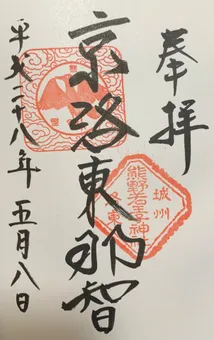 奉拝
城州
熊野若王子神社
京洛東那智
平成二十八年 五月八日